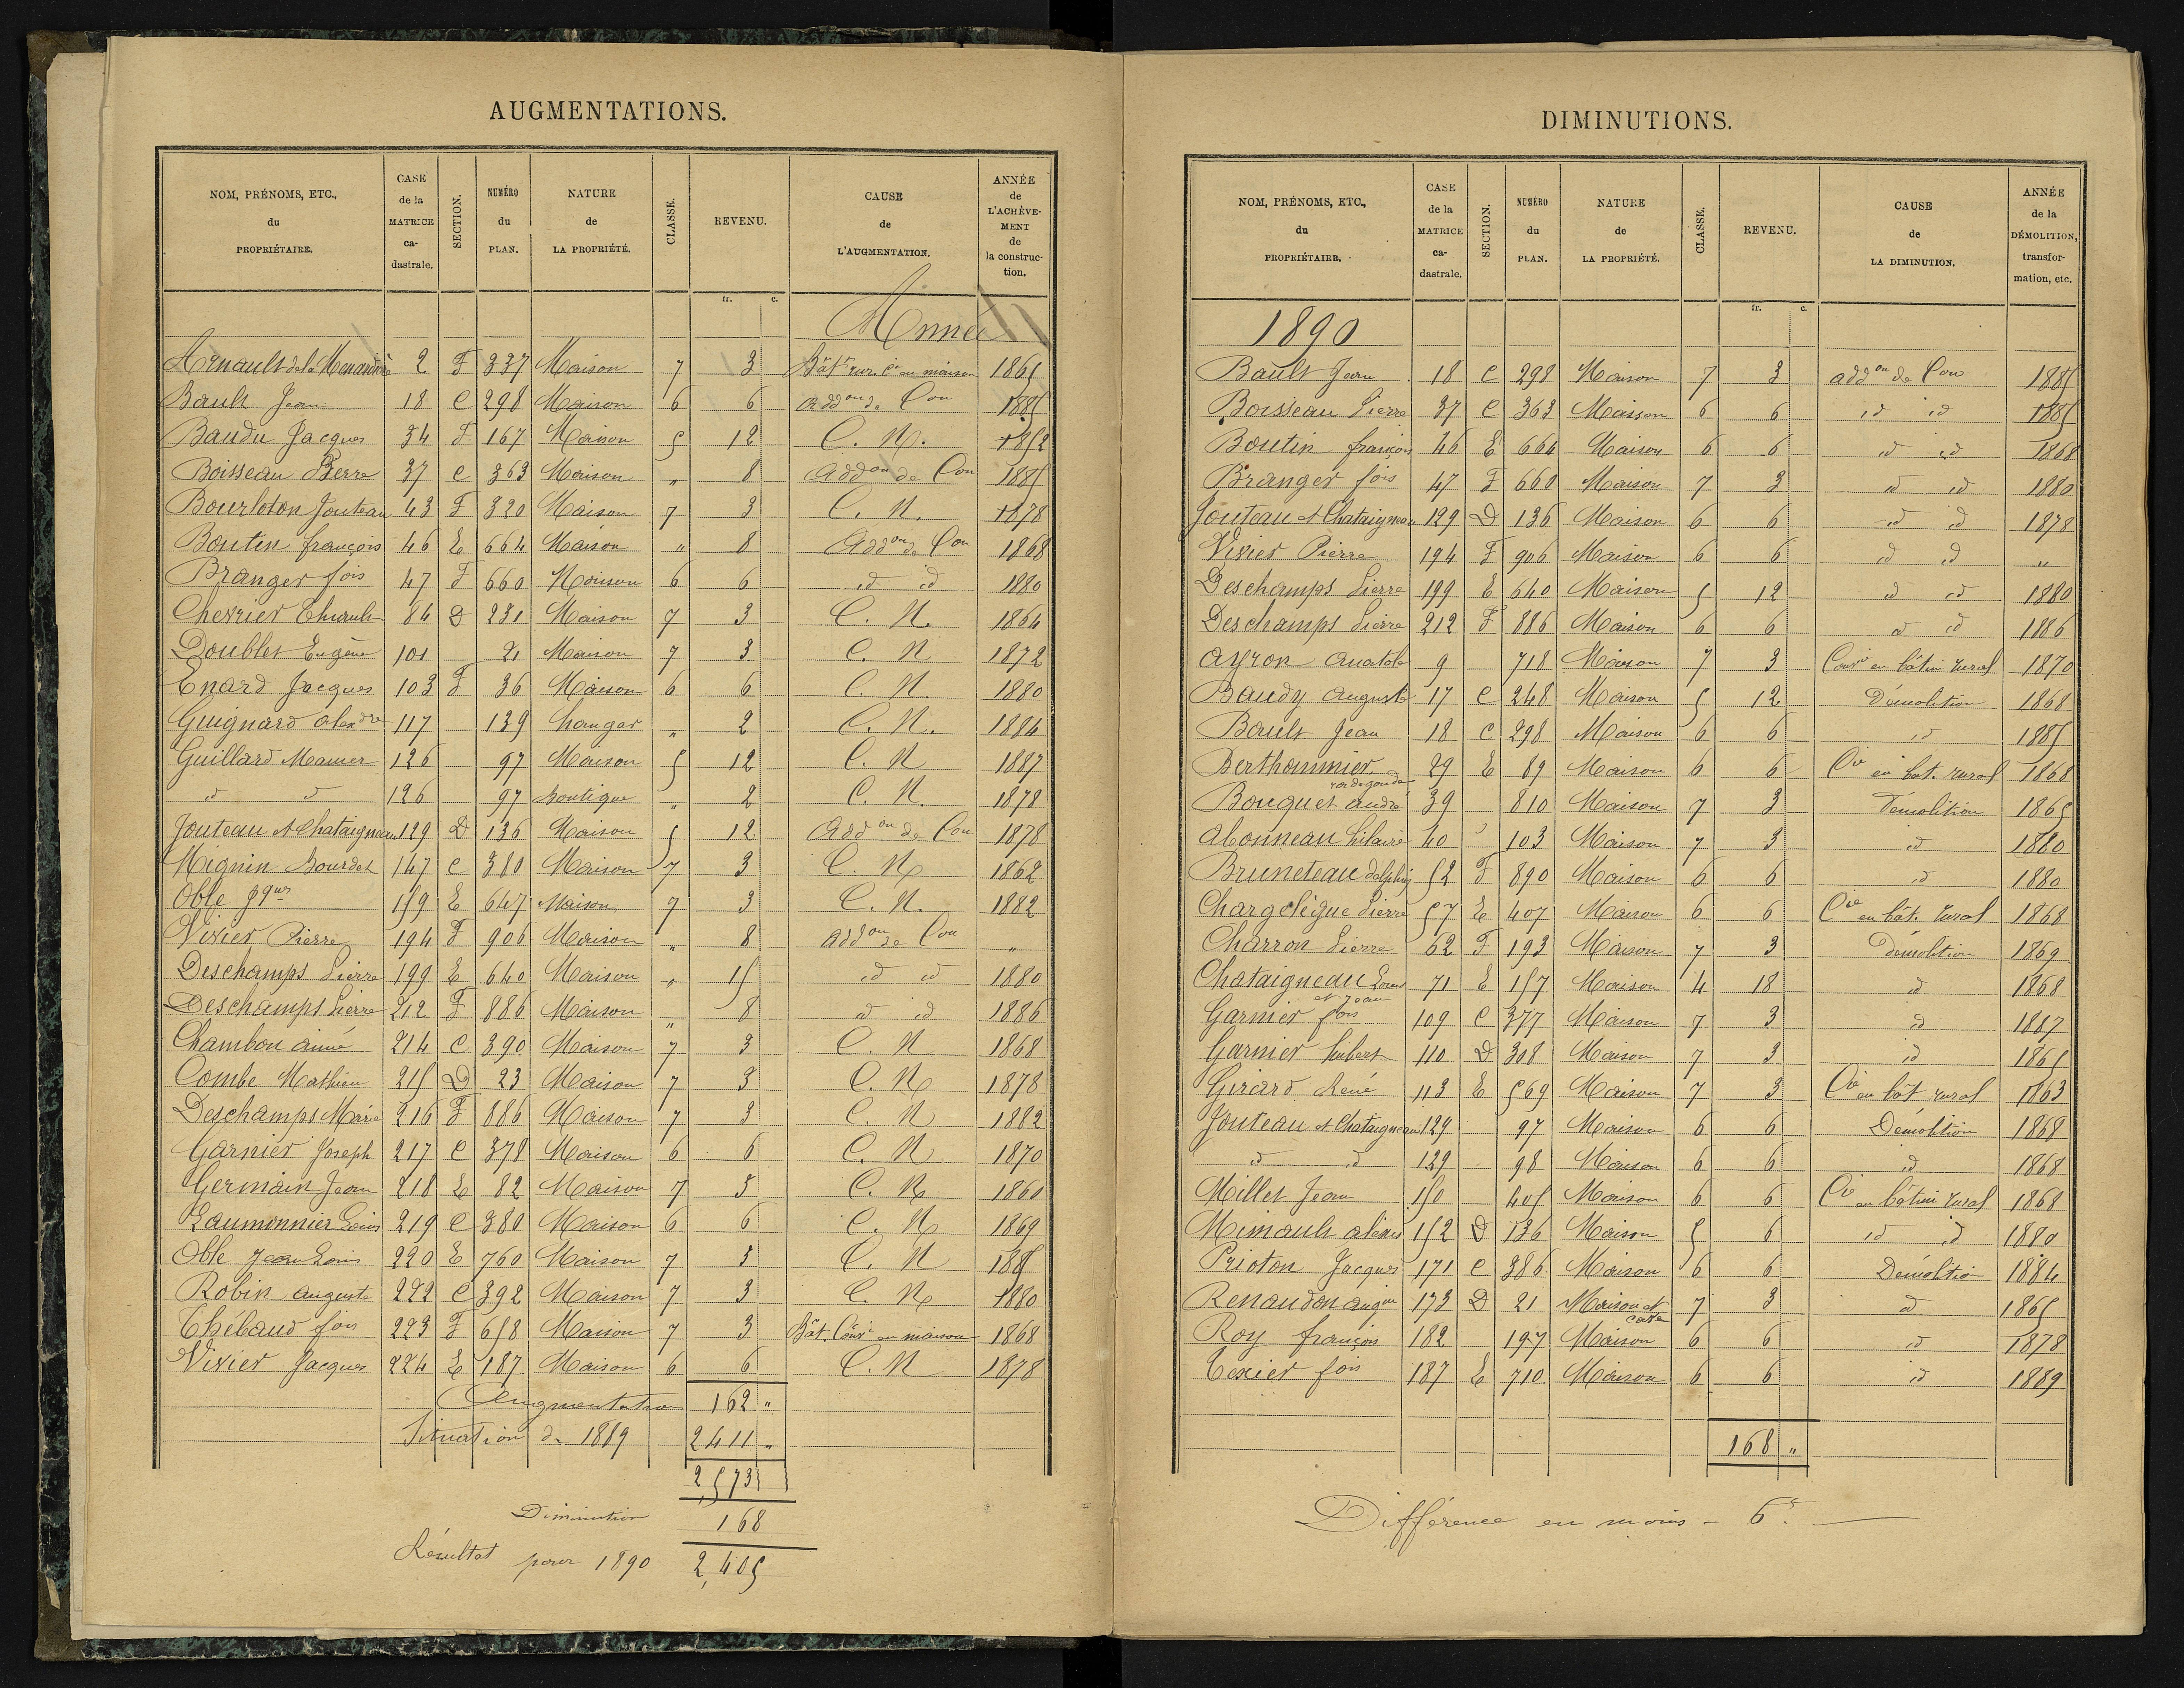 AUGMENTATIONS.
NOM, PRÉNOMS, ETC., du PROPRIÉTAIRE. | CASE de la MATRICE ca-dastrale. | SECTION. | NUMÉRO du PLAN. | NATURE de LA PROPRIÉTÉ. | CLASSE. | REVENU. | CAUSE de L'AUGMENTATION. | ANNÉE de L'ACHÈVE-MENT de la construc-tion.
fr. c.
Année
Arnault de la 2 F 337 Maison 7 3 Bât. rur. en maison 1865
Bault Jean 18 C 298 Maison 6 6 Addon de Con 1885
Baudu Jacques 34 F 167 Maison 5 12 C. N. 1852
Boisseau Pierre 37 C 363 Maison " 8 Addon de Con 1885
Bourloton Jouteau 43 F 320 Maison 7 3 C. N. 1878
Boutin françois 46 E 664 Maison " 8 Addon de Con 1868
Branger fois 47 F 660 Maison 6 6 id id 1880
Chevrier Thiault 84 D 231 Maison 7 3 C. N. 1864
Doublet Eugène 101 21 Maison 7 3 C. N 1872
Enard Jacques 103 F 36 Maison 6 6 C. N. 1880
Guignard alexdre 117 139 hangar " 2 C. N. 1884
Guillard Mamer 126 97 Maison 5 12 C. N 1887
id id 126 97 Boutique " 2 C. N. 1878
Jouteau et Chataigneau 129 D 136 Maison 5 12 Addon de Con 1878
Mignin Bourdet 147 C 380 Maison 7 3 C. N 1862
Oble Jques 159 E 647 Maison 7 3 C. N. 1882
Vivier Pierre 194 F 906 Maison " 8 Addon de Con "
Deschamps Pierre 199 E 640 Maison " 15 id id 1880
Deschamps Pierre 212 F 886 Maison " 8 id id 1886
Chambon aimé 214 C 390 Maison 7 3 C. N 1868
Combe Mathieu 215 D 23 Maison 7 3 C. N 1878
Deschamps Marie 216 F 886 Maison 7 3 C. N 1882
Garnier Joseph 217 C 378 Maison 6 6 C. N 1870
Germain Jean 218 E 82 Maison 7 3 C. N 1860
Laumonnier Louis 219 C 380 Maison 6 6 C. N 1869
Oble Jean Louis 220 E 760 Maison 7 3 C. N 1885
Robin auguste 222 C 392 Maison 7 3 C. N 1880
Thébaud fois 223 F 658 Maison 7 3 Bât. Convi en maison 1868
Vivier Jacques 224 E 187 Maison 6 6 C. N 1878
Augmentation 162 "
Situation de 1889 2411 "
2,573
Diminution 168
Résultat pour 1890 2,405
DIMINUTIONS.
NOM, PRÉNOMS, ETC., du PROPRIÉTAIRE. | CASE de la MATRICE ca-dastrale. | SECTION. | NUMÉRO du PLAN. | NATURE de LA PROPRIÉTÉ. | CLASSE. | REVENU. | CAUSE de LA DIMINUTION. | ANNÉE de la DÉMOLITION, transfor-mation, etc.
fr. c.
1890
Bault Jean 18 C 298 Maison 7 3 addon de Con 1885
Boisseau Pierre 37 C 363 Maison 6 6 id id 1885
Boutin françois 46 E 664 Maison 6 6 id id 1868
Branger fois 47 F 660 Maison 7 3 id id 1880
Jouteau et Chataigneau 129 D 136 Maison 6 6 id id 1878
Vivier Pierre 194 F 906 Maison 6 6 id id "
Deschamps Pierre 199 E 640 Maison 5 12 id id 1880
Deschamps Pierre 212 F 886 Maison 6 6 id id 1886
Ayron Anatole 9 718 Maison 7 3 Convi en bâtim rural 1870
Baudy Auguste 17 C 248 Maison 5 12 Démolition 1868
Bault Jean 18 C 298 Maison 6 6 id 1885
Berthommier radegonde 29 E 89 Maison 6 6 Cvi en bat. rural 1868
Bouquet andré 39 810 Maison 7 3 Démolition 1865
Abonneau hilaire 40 103 Maison 7 3 id 1880
Bruneteau delphin 52 F 890 Maison 6 6 id 1880
Chargelègue Pierre 57 E 407 Maison 6 6 Cvi en bât. rural 1868
Charron Pierre 62 F 193 Maison 7 3 démolition 1869
Chataigneau Louis et Jean 71 E 157 Maison 4 18 id 1868
Garnier fois 109 C 377 Maison 7 3 id 1887
Garnier hubert 110 D 308 Maison 7 3 id 1865
Girard René 113 E 569 Maison 7 3 Cvi en bât rural 1863
Jouteau et Chataigneau 129 97 Maison 6 6 Démolition 1868
id id 129 98 Maison 6 6 id 1868
Millet Jean 150 405 Maison 6 6 Cvi en bâtim rural 1868
Minault alexis 152 D 136 Maison 5 6 id id 1880
Prioton Jacques 171 C 386 Maison 6 6 Démolition 1884
Renaudon augin 173 D 21 Maison et cave 7 3 id 1865
Roy françois 182 197 Maison 6 6 id 1878
Texier fois 187 E 710 Maison 6 6 id 1889
168 "
Différence en moins - 6.